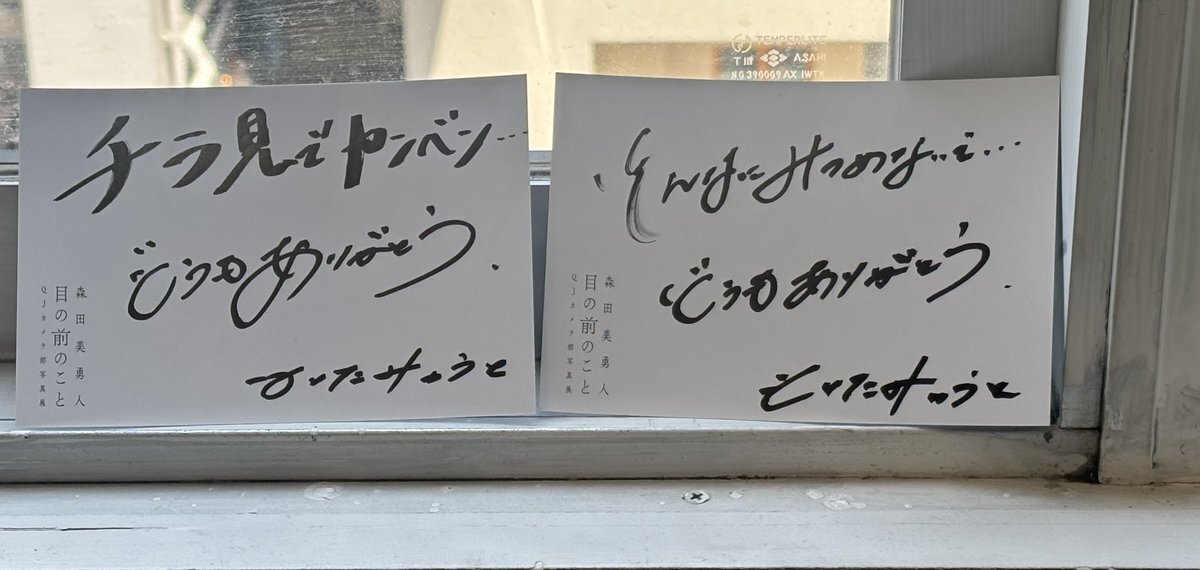 TEMPERLITE
ASAHI
チラ見でヤンベン…
どうもありがとう.
もりたみゅうと
森田美勇人
目の前のこと
QJカメラ部写真展
そんなにみつめないで…
どうもありがとう.
もりたみゅうと
森田美勇人
目の前のこと
QJカメラ部写真展